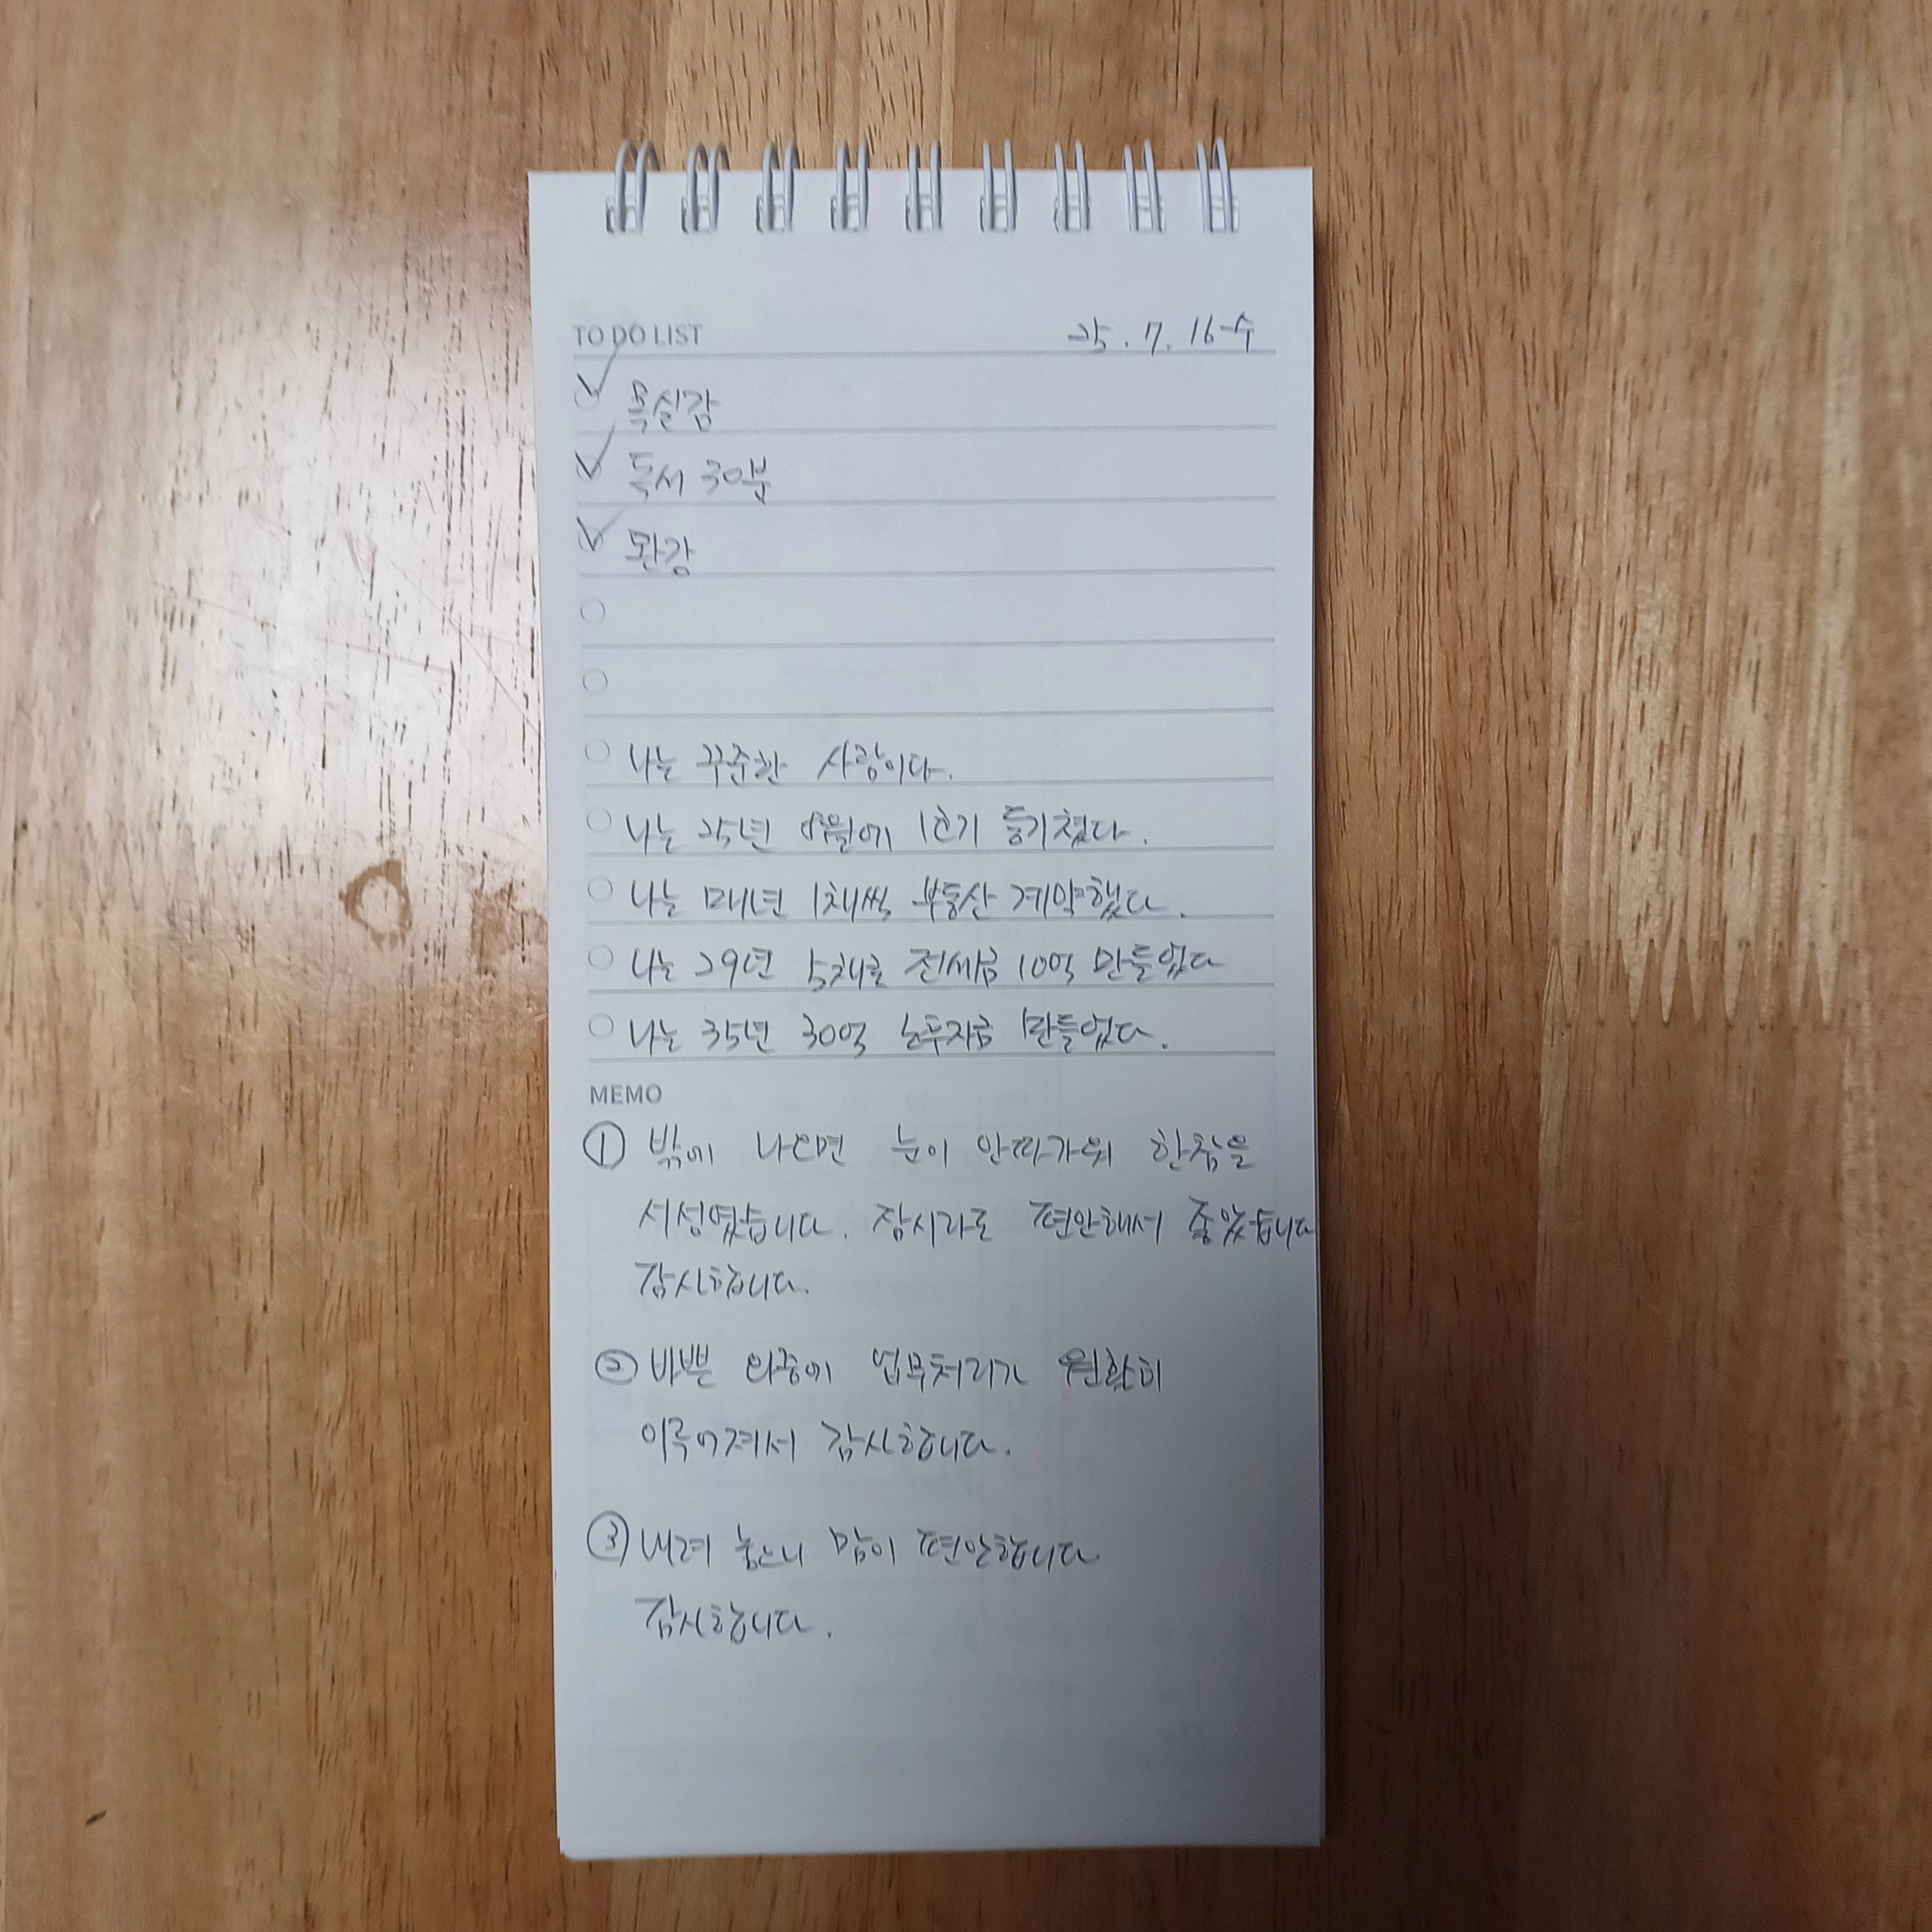 TO DO LIST 25. 7. 16 수
목실감
독서 30분
돤강
나는 꾸준한 사람이다.
나는 25년 월에 1호기 등기쳤다.
나는 매년 1채씩 부동산 계약했다.
나는 29년 5채로 전세금 10억 만들었다
나는 35년 30억 노후자금 만들었다.
MEMO
① 밖에 나오면 눈이 안따가워 한참을
서성였습니다. 잠시라도 편안해서 좋았습니다
감사합니다.
② 바쁜 와중에 업무처리가 원활히
이루어져서 감사합니다.
③ 내려 놓으니 맘이 편안합니다
감사합니다.